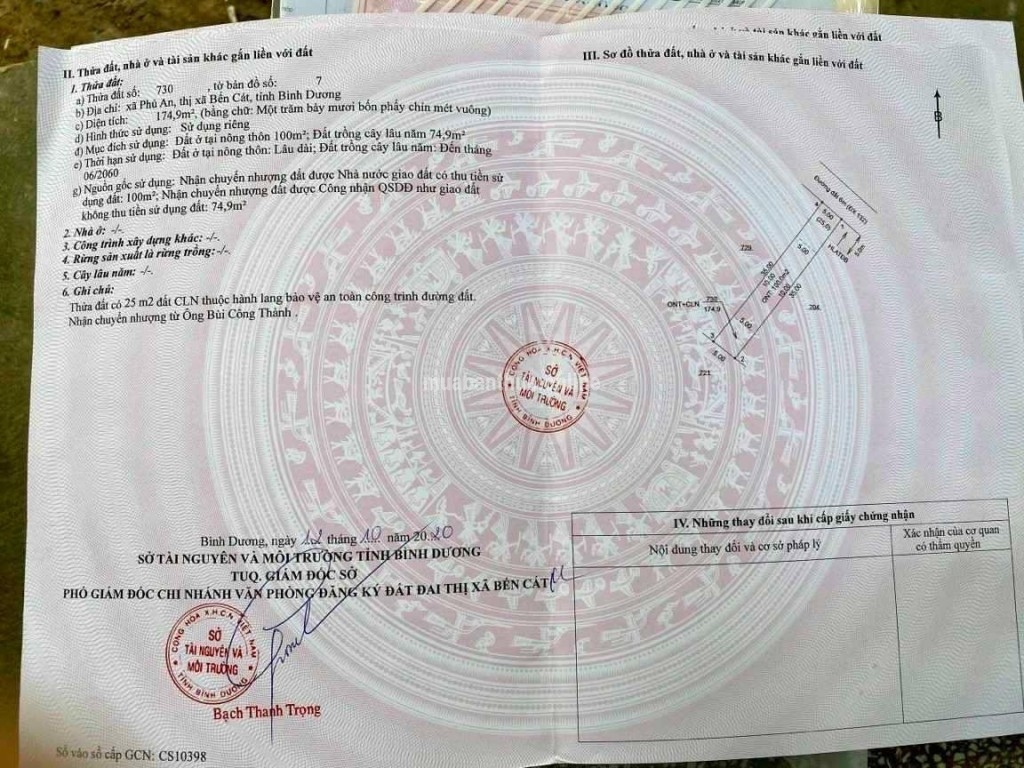 II. Thửa đất, nhà ở và tài sản khác gắn liền với đất
1. Thửa đất:
a) Thửa đất số: 730 , tờ bản đồ số: 7
b) Địa chỉ: xã Phú An, thị xã Bến Cát, tỉnh Bình Dương
c) Diện tích: 174,9m², (bằng chữ: Một trăm bảy mươi bốn phẩy chín mét vuông)
d) Hình thức sử dụng: Sử dụng riêng
đ) Mục đích sử dụng: Đất ở tại nông thôn 100m²; Đất trồng cây lâu năm 74,9m²
e) Thời hạn sử dụng: Đất ở tại nông thôn: Lâu dài; Đất trồng cây lâu năm: Đến tháng
06/2060
g) Nguồn gốc sử dụng: Nhận chuyển nhượng đất được Nhà nước giao đất có thu tiền sử
dụng đất: 100m²; Nhận chuyển nhượng đất được Công nhận QSDĐ như giao đất
không thu tiền sử dụng đất: 74,9m²
2. Nhà ở: -/-.
3. Công trình xây dựng khác: -/-.
4. Rừng sản xuất là rừng trồng: -/-.
5. Cây lâu năm: -/-.
6. Ghi chú:
Thửa đất có 25 m2 đất CLN thuộc hành lang bảo vệ an toàn công trình đường đất.
Nhận chuyển nhượng từ Ông Bùi Công Thành .
Bình Dương, ngày 12 tháng 10 năm 2020
SỞ TÀI NGUYÊN VÀ MÔI TRƯỜNG TỈNH BÌNH DƯƠNG
TUQ. GIÁM ĐỐC SỞ
PHÓ GIÁM ĐỐC CHI NHÁNH VĂN PHÒNG ĐĂNG KÝ ĐẤT ĐAI THỊ XÃ BẾN CÁT
CỘNG HÒA X.H.C.N VIỆT NAM
SỞ
TÀI NGUYÊN VÀ
MÔI TRƯỜNG
TỈNH BÌNH DƯƠNG
Bạch Thanh Trọng
Số vào sổ cấp GCN: CS10398
tài sản khác gắn liền với đất
III. Sơ đồ thửa đất, nhà ở và tài sản khác gắn liền với đất
B
5.00
(25.0)
HLATĐB
729
5.00
30.00
10.00
ONT: 100.0m2
10.00
30.00
204
ONT+CLN 730
174.9
5.00
5.00
221
CỘNG HÒA X.H.C.N VIỆT NAM
SỞ
TÀI NGUYÊN VÀ
MÔI TRƯỜNG
TỈNH BÌNH DƯƠNG
IV. Những thay đổi sau khi cấp giấy chứng nhận
Nội dung thay đổi và cơ sở pháp lý
Xác nhận của cơ quan
có thẩm quyền